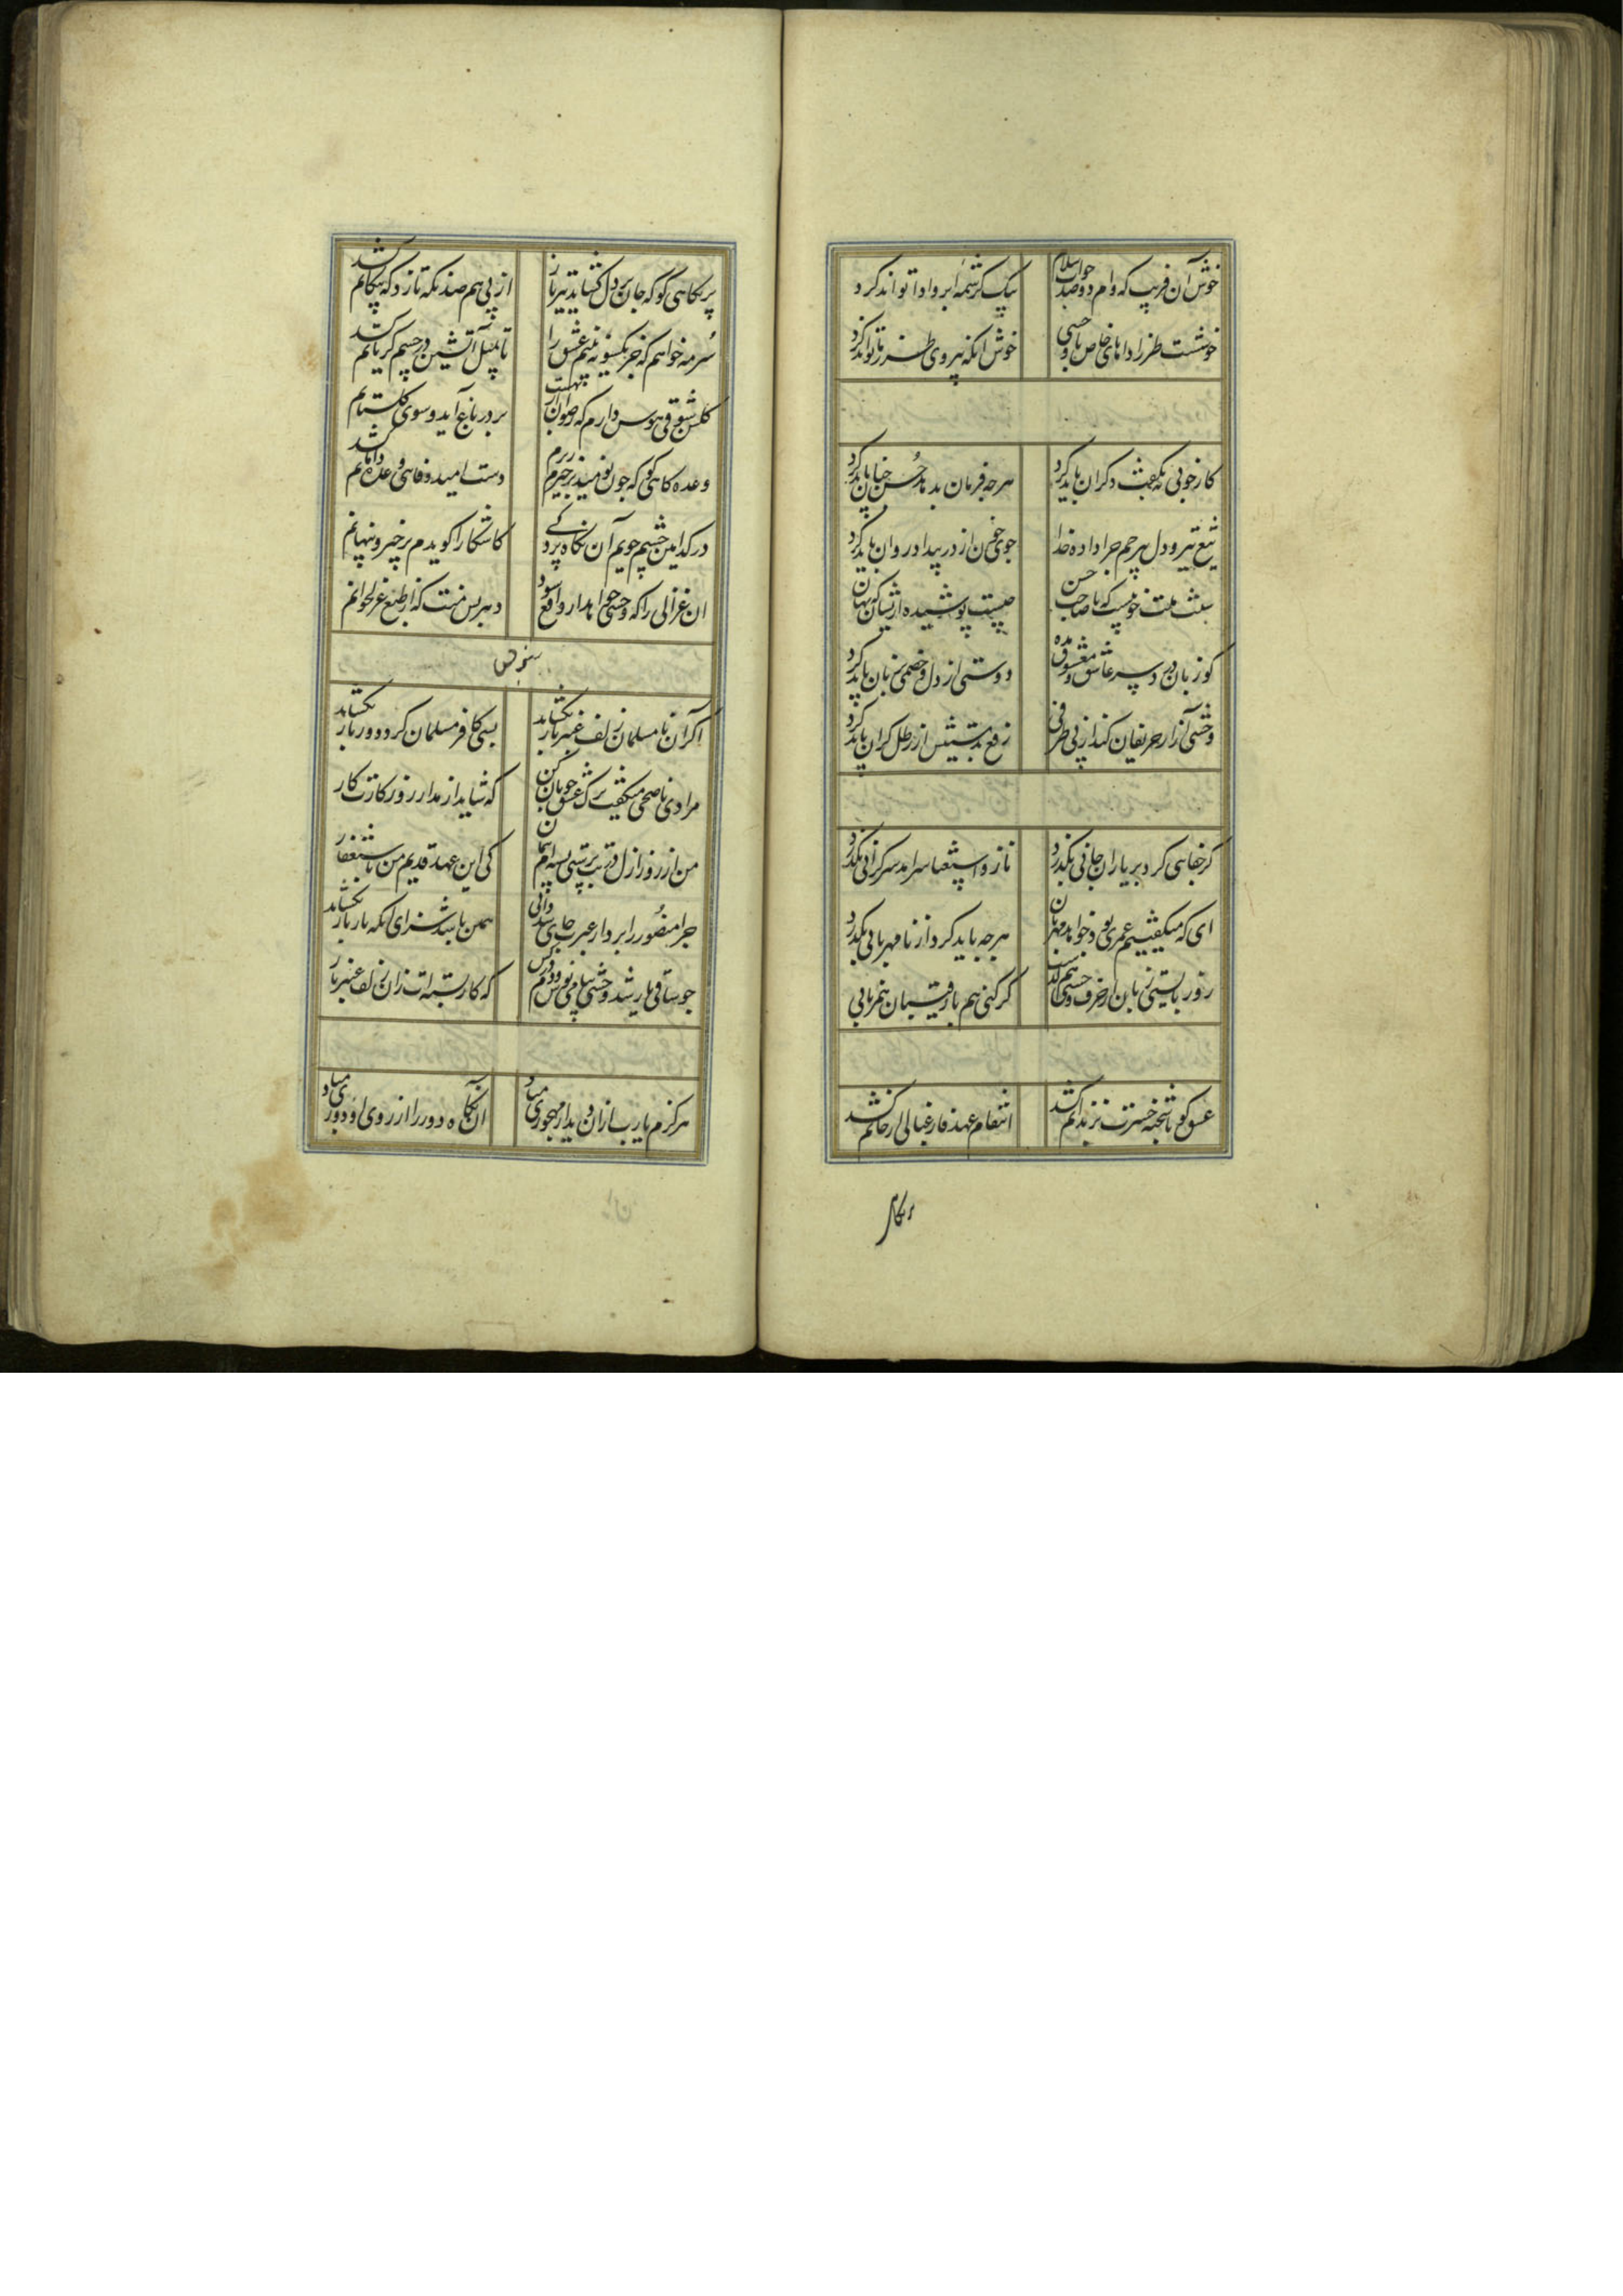 خوش آن فریب که وام دو صد جواب سلام
بیک کرشمه ابرو ادا تواند کرد
خوشست طرز اداهای خاص با وحشی
خوش آنکه پیروی طرز ما تواند کرد
کار خوبی نه بگفت دکران باید کرد
هر چه فرمان بدهد حسن چنان باید کرد
تیغ تیز و دل بیرحم چرا داده خدا
جوی خون از در بیداد روان باید کرد
چیست پوشیده ازیشان که نهان باید کرد
کو زبان در سر عاشق و معشوق مده
دوستی از دل و خصمی بزبان باید کرد
وحشی آزار حریفان کند از بی ظرفی
رفع بدمستیش از رطل کران باید کرد
کر جفاهی کرد بر یاران جانی بگذرد
ناز و استغنا سرآمد سرکرانی بگذرد
ای که میکفتیم عمری بود خواهد مهربان
هر چه باید کرد از نامهربانی بگذرد
کر کنی هم با رقیبان
عشق کو تا شحنه حسرت بزندانم کشد
انتقام عهد فارغبالی از جانم کشد
پر نکاهی کو که جان بر دل کشاید تیر ناز
از پی هم صد نکه تا زد که پیکانم کشد
سرمه خواهم که جز یکسو نه بینم عشق را
تا بمیل آتشین در چشم کریانم کشد
کلشن شوقی هوس دارم که رضوان از بهشت
بر در باغ آید و سوی کلستانم
وعده کاهی کو که چون نومید برخیزم
دست امید وفاهی وعده دامانم کشد
در کدامین چشم جویم آن نکاه پرده
کاشکارا کویدم برخیز و پنهانم
آن غزالی را که وحشی خواهد ار واقع شود
دهر بس منت که از طبع غزلخوانم
اکر آن نامسلمان زلف عنبر بار بکشاید
بسی کافر مسلمان کردد و زنار بکشاید
مرا دی ناصحی میکفت ترک عشق خوبان کن
که شاید از مدار روزکارت کار
من از روز ازل در بت پرستی بسته ام پیمان
کی این عهد قدیم من باستغفار
چرا منصور را بر دار عبرت جای شد دانی
همین باشد سزای آنکه بار یار بکشاید
چو ساقی یار شد وحشی بیا می نوش و دم درکش
که کار بسته ات زان زلف عنبر بار
هرکزم یارب از آن دیدار مهجوری مباد
آن نکاه دور را از روی او دوری مباد